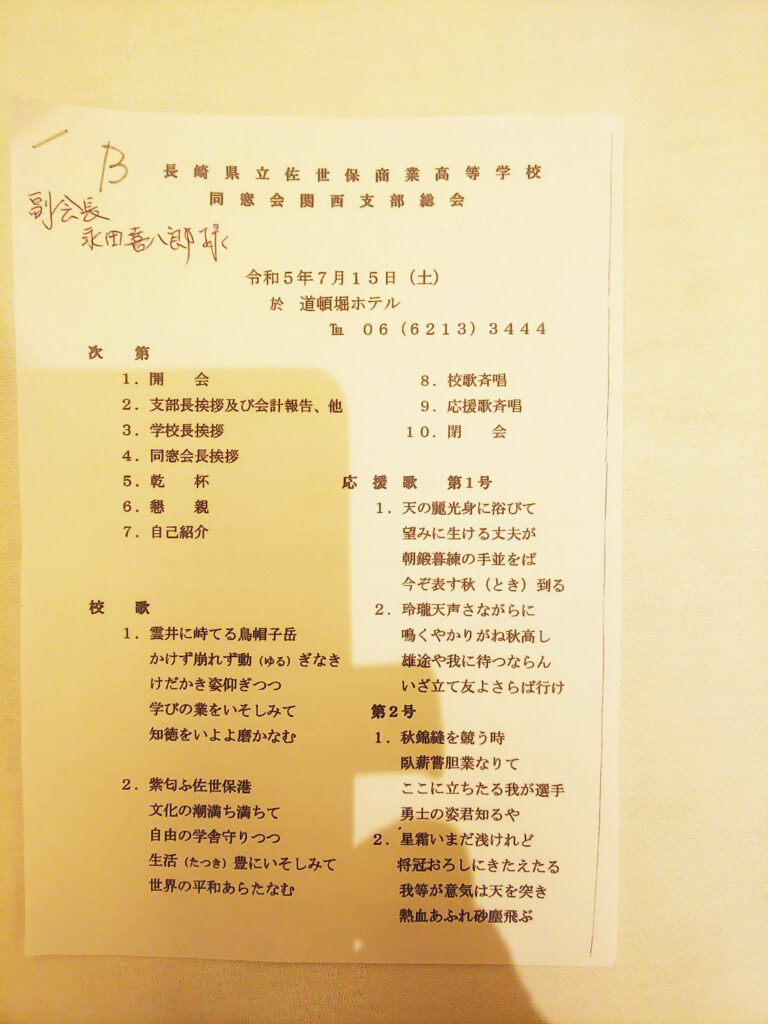 B
長崎県立佐世保商業高等学校
同窓会関西支部総会
副会長
永田喜八郎様
令和5年7月15日（土）
於　道頓堀ホテル
℡　06（6213）3444
次　第
1．開　会
2．支部長挨拶及び会計報告、他
3．学校長挨拶
4．同窓会長挨拶
5．乾　杯
6．懇　親
7．自己紹介
8．校歌斉唱
9．応援歌斉唱
10．閉　会
校　歌
1．雲井に峙てる烏帽子岳
かけず崩れず動（ゆる）ぎなき
けだかき姿仰ぎつつ
学びの業をいそしみて
知徳をいよよ磨かなむ
2．紫匂ふ佐世保港
文化の潮満ち満ちて
自由の学舎守りつつ
生活（たつき）豊にいそしみて
世界の平和あらたなむ
応援歌　第1号
1．天の麗光身に浴びて
望みに生ける丈夫が
朝鍛暮練の手並をば
今ぞ表す秋（とき）到る
2．玲瓏天声さながらに
鳴くやかりがね秋高し
雄途や我に待つならん
いざ立て友よさらば行け
第2号
1．秋錦縫を競う時
臥薪嘗胆業なりて
ここに立ちたる我が選手
勇士の姿君知るや
2．星霜いまだ浅けれど
将冠おろしにきたえたる
我等が意気は天を突き
熱血あふれ砂塵飛ぶ